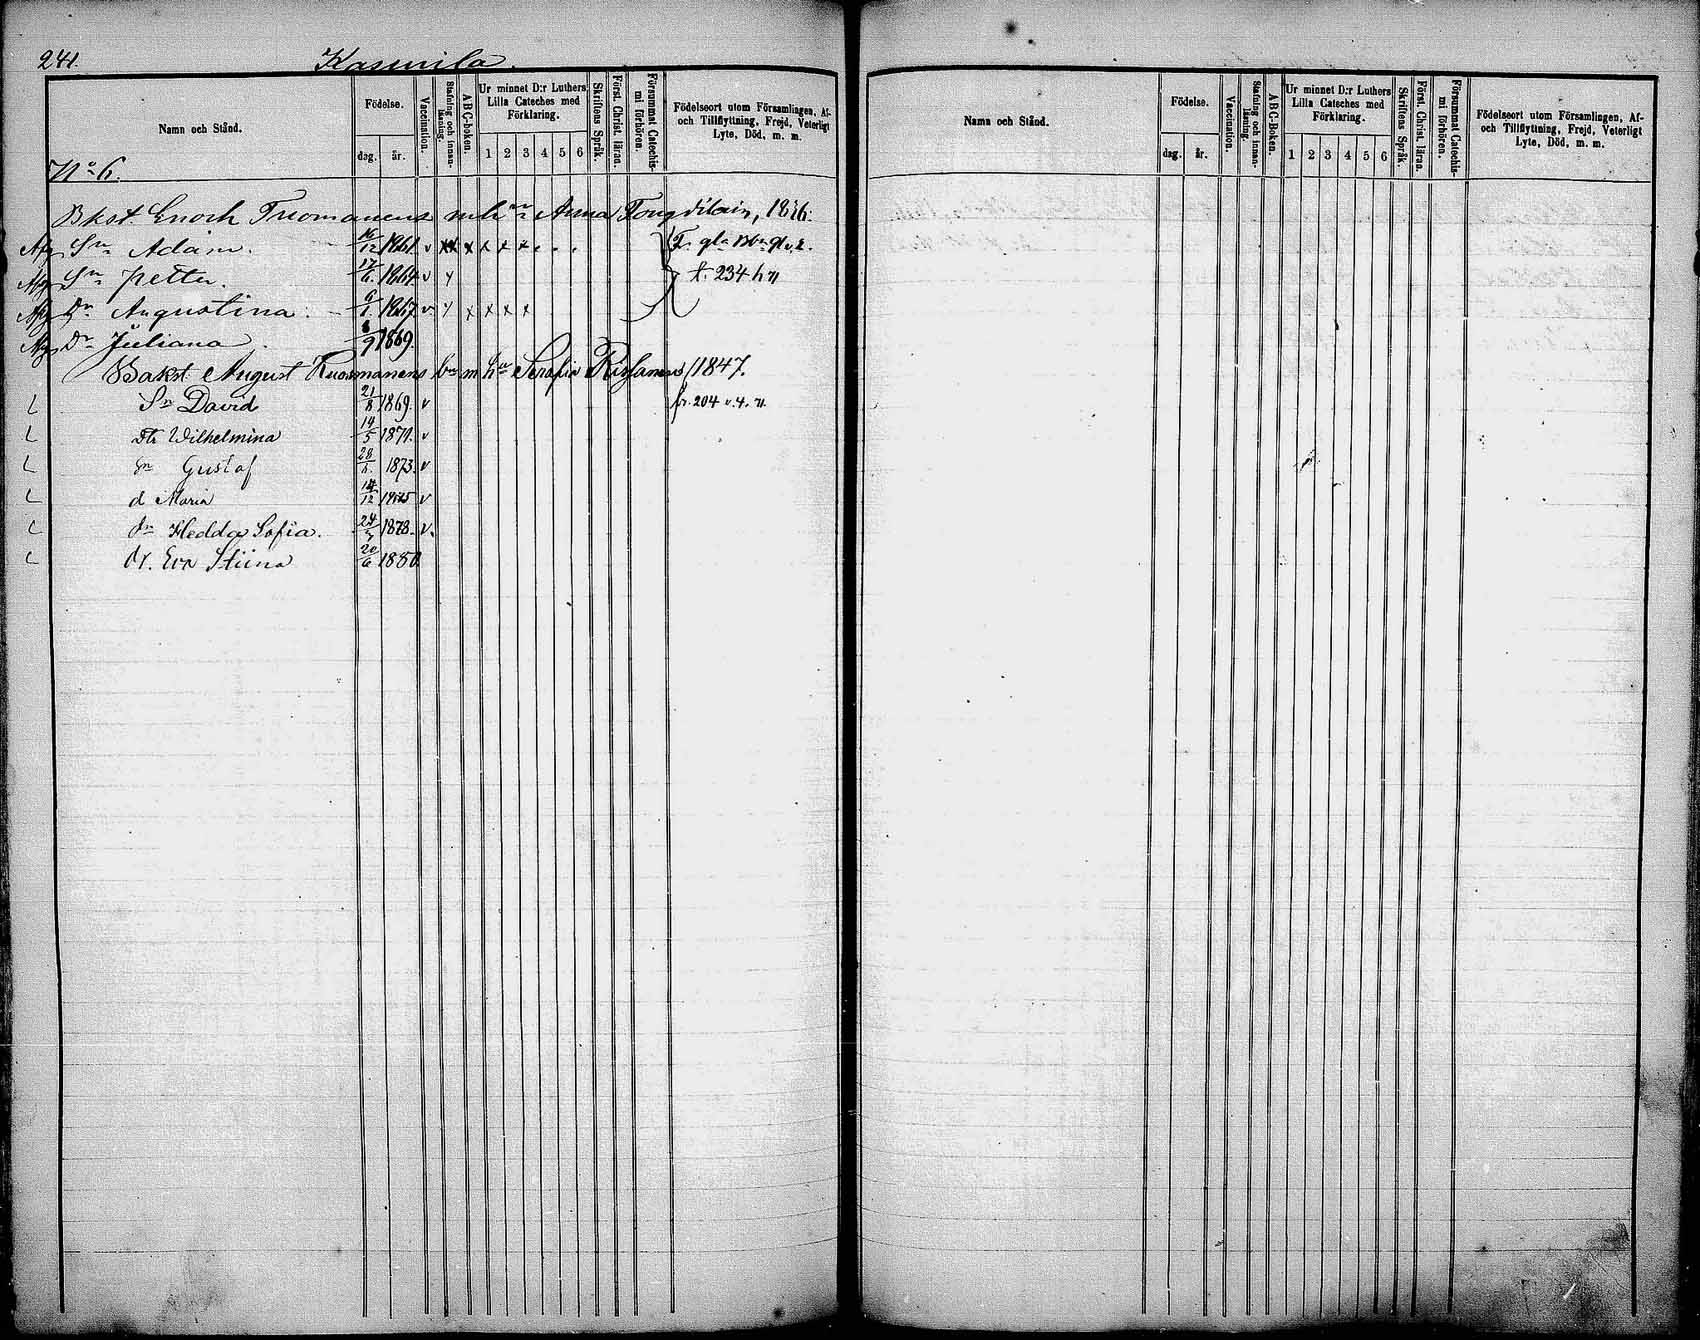 241.
Kasurila.
Namn och Stånd.
Födelse.
dag. år.
Vaccination.
Stafning och innan-läsning.
A B C-boken.
Ur minnet D:r Luthers Lilla Cateches med Förklaring.
1 2 3 4 5 6
Skriftens Språk.
Först. Christ. läran.
Försummat Catechis-mi förhören.
Födelseort utom Församlingen, Af- och Tillflyttning, Frejd, Veterligt Lyte, Död, m. m.
No 6.
Bkst. Enoch Tuomainens Anna 1826.
Afg Sn Adam. 16/12 1861 v
Afg Sn Petter. 17/6 1864 v f. 234
Afg Dr Augustina. 6/1 1867 v x x x x
Afg Dr Juliana. 9 1869.
Bakst August Ruosmanens Serafia 1847.
Sn David 21/8 1869 v fr. 204
Dtr Wilhelmina 19/5 1871. v
Sn Gustaf 28 1873. v
d Maria 14/12 1875 v
Dr Hedda Sofia. 24 1878. v.
Dr. Eva Stiina 20/6 1880
Namn och Stånd.
Födelse.
dag. år.
Vaccination.
Stafning och innan-läsning.
A B C-Boken.
Ur minnet D:r Luthers Lilla Cateches med Förklaring.
1 2 3 4 5 6
Skriftens Språk.
Först. Christ. läran.
Försummat Catechis-mi förhören.
Födelseort utom Församlingen, Af- och Tillflyttning, Frejd, Veterligt Lyte, Död, m. m.